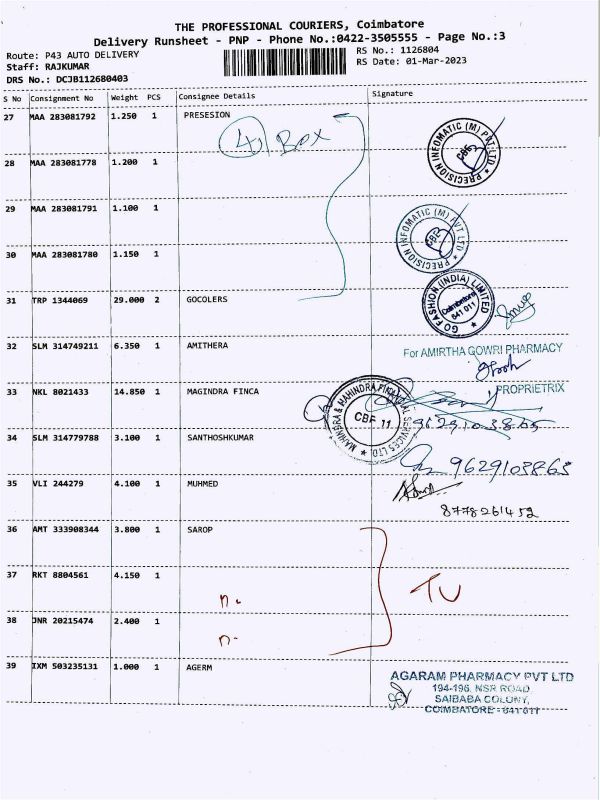 THE PROFESSIONAL COURIERS, Coimbatore
Delivery Runsheet - PNP - Phone No.:0422-3505555 - Page No.:3
Route: P43 AUTO DELIVERY
RS No.: 1126804
Staff: RAJKUMAR
RS Date: 01-Mar-2023
DRS No.: DCJB112680403
S No Consignment No Weight PCS Consignee Details Signature
27 MAA 283081792 1.250 1 PRESESION
4) Box
PRECISION INFOMATIC (M) PVT LTD
CBE
28 MAA 283081778 1.200 1
29 MAA 283081791 1.100 1
PRECISION INFOMATIC (M) PVT LTD
CBE
30 MAA 283081780 1.150 1
31 TRP 1344069 29.000 2 GOCOLERS
GO FASHION (INDIA) LIMITED
Coimbatore
641 011
32 SLM 314749211 6.350 1 AMITHERA
For AMIRTHA GOWRI PHARMACY
PROPRIETRIX
33 NKL 8021433 14.850 1 MAGINDRA FINCA
MAHINDRA & MAHINDRA FINANCIAL SERVICES LTD
CBE 11
34 SLM 314779788 3.100 1 SANTHOSHKUMAR
9629103865
9629103863
35 VLI 244279 4.100 1 MUHMED
8778261452
36 AMT 333908344 3.800 1 SAROP
37 RKT 8804561 4.150 1
TU
38 JNR 20215474 2.400 1
39 IXM 503235131 1.000 1 AGERM
AGARAM PHARMACY PVT LTD
194-196, NSR ROAD,
SAIBABA COLONY,
COIMBATORE - 641 011